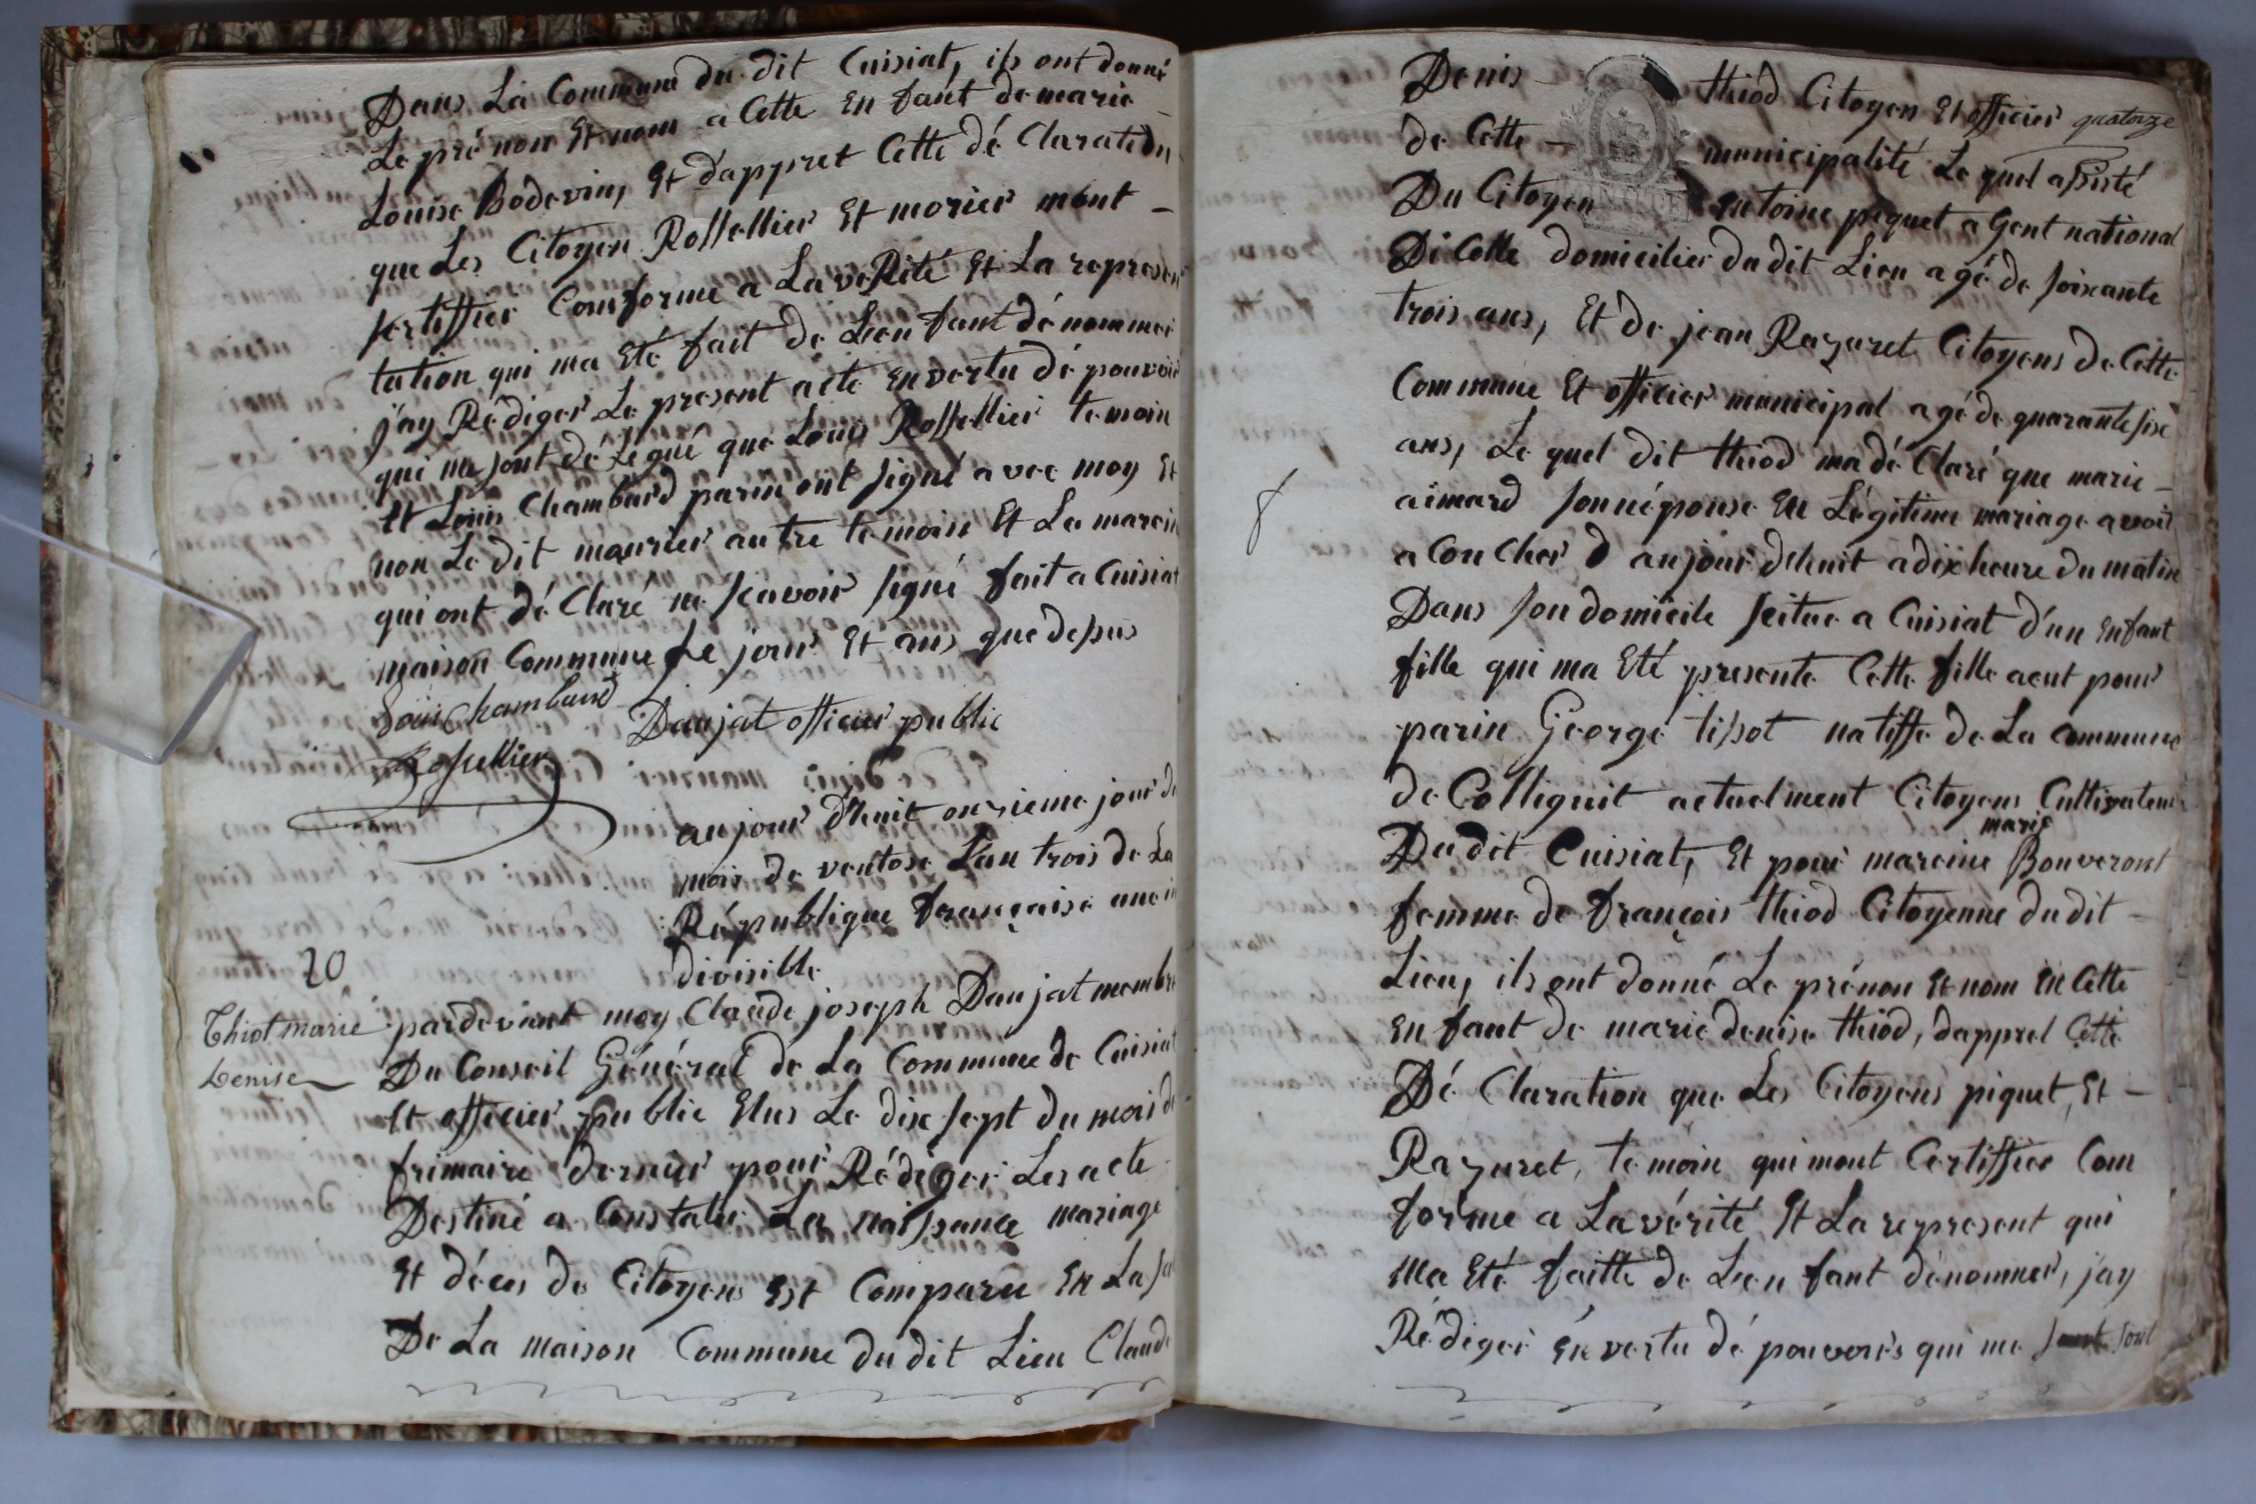 Dans La Commune du dit Cuisiat, ils ont donné
Le pré non Et nom a Cette En fant de marie
Louise Bodevin, Et dappret Cette dé Claration
que Les Citoyen Rossellier Et morier mont -
sertiffier Comforme a La veRité Et La represen
tation qui ma Eté fait de Len fant dé nommer
j'ay Rédiger Le present acte En vertu dé pouvoir
qui me sont dé Légué que Louis Rossellier temoin
Et Louis Chambard parin ont signé avec moy Et
non Le dit maurier autre temoin Et La marein
qui ont dé Claré ne scavoir signé fait a Cuisiat
maison Commune Le jour Et ans que desus
Louis Chambard
Daujat officier public
Rossellier
aujour d'huit onzieme jour du
mois de ventose L'an trois de La
République française une in
divisible
20
Thiot marie
denise
pardevant moy Claude joseph Daujat membre
Du Conseil Général de La Commune de Cuisiat
Et officier public Elus Le dix sept du mois de
frimaire dernier pour Rédiger Les acte
Destiné a Constater La naissance mariage
Et déces de Citoyens Est Comparu En La sal
De La maison Commune du dit Lieu Claude
Denis - thiod Citoyen Et officier
quatorze
de Cette - municipalité Le quel assisté
Du Citoyen antoine piquet a Gent national
Di Celle domicilier du dit Lieu a gé de soixante
trois ans, Et de jean Razuret Citoyens de Cette
Commune Et officier municipal a gé de quarante six
ans, Le quel dit thiod ma dé Claré que marie -
aimard sonnéponse En Légitime mariage avoir
a Cou Cher d aujour dhuit a dix heure du matin
Dans son domicile scitue a Cuisiat d'un Enfant
fille qui ma Eté presente Cette fille aeut pour
parin George tissot natiffe de La Commune
de Colliguit actuelment Citoyens Cultivateur
marie
Du dit Cuisiat, Et pour mareine Bouveront
femme de françois thiod Citoyenne du dit -
Lieu, ils ont donné Le prénon Et nom En Cette
En fant de marie denise thiod, dappret Cette
Dé Claration que Les Citoyens piquet, Et -
Razuret, temoin qui mont Certiffier Com
forme a La vérité Et La represent qui
ma Eté faitte de Len fant dénommer, jay
Rédiger En vertu dé pouvoirs qui me sont